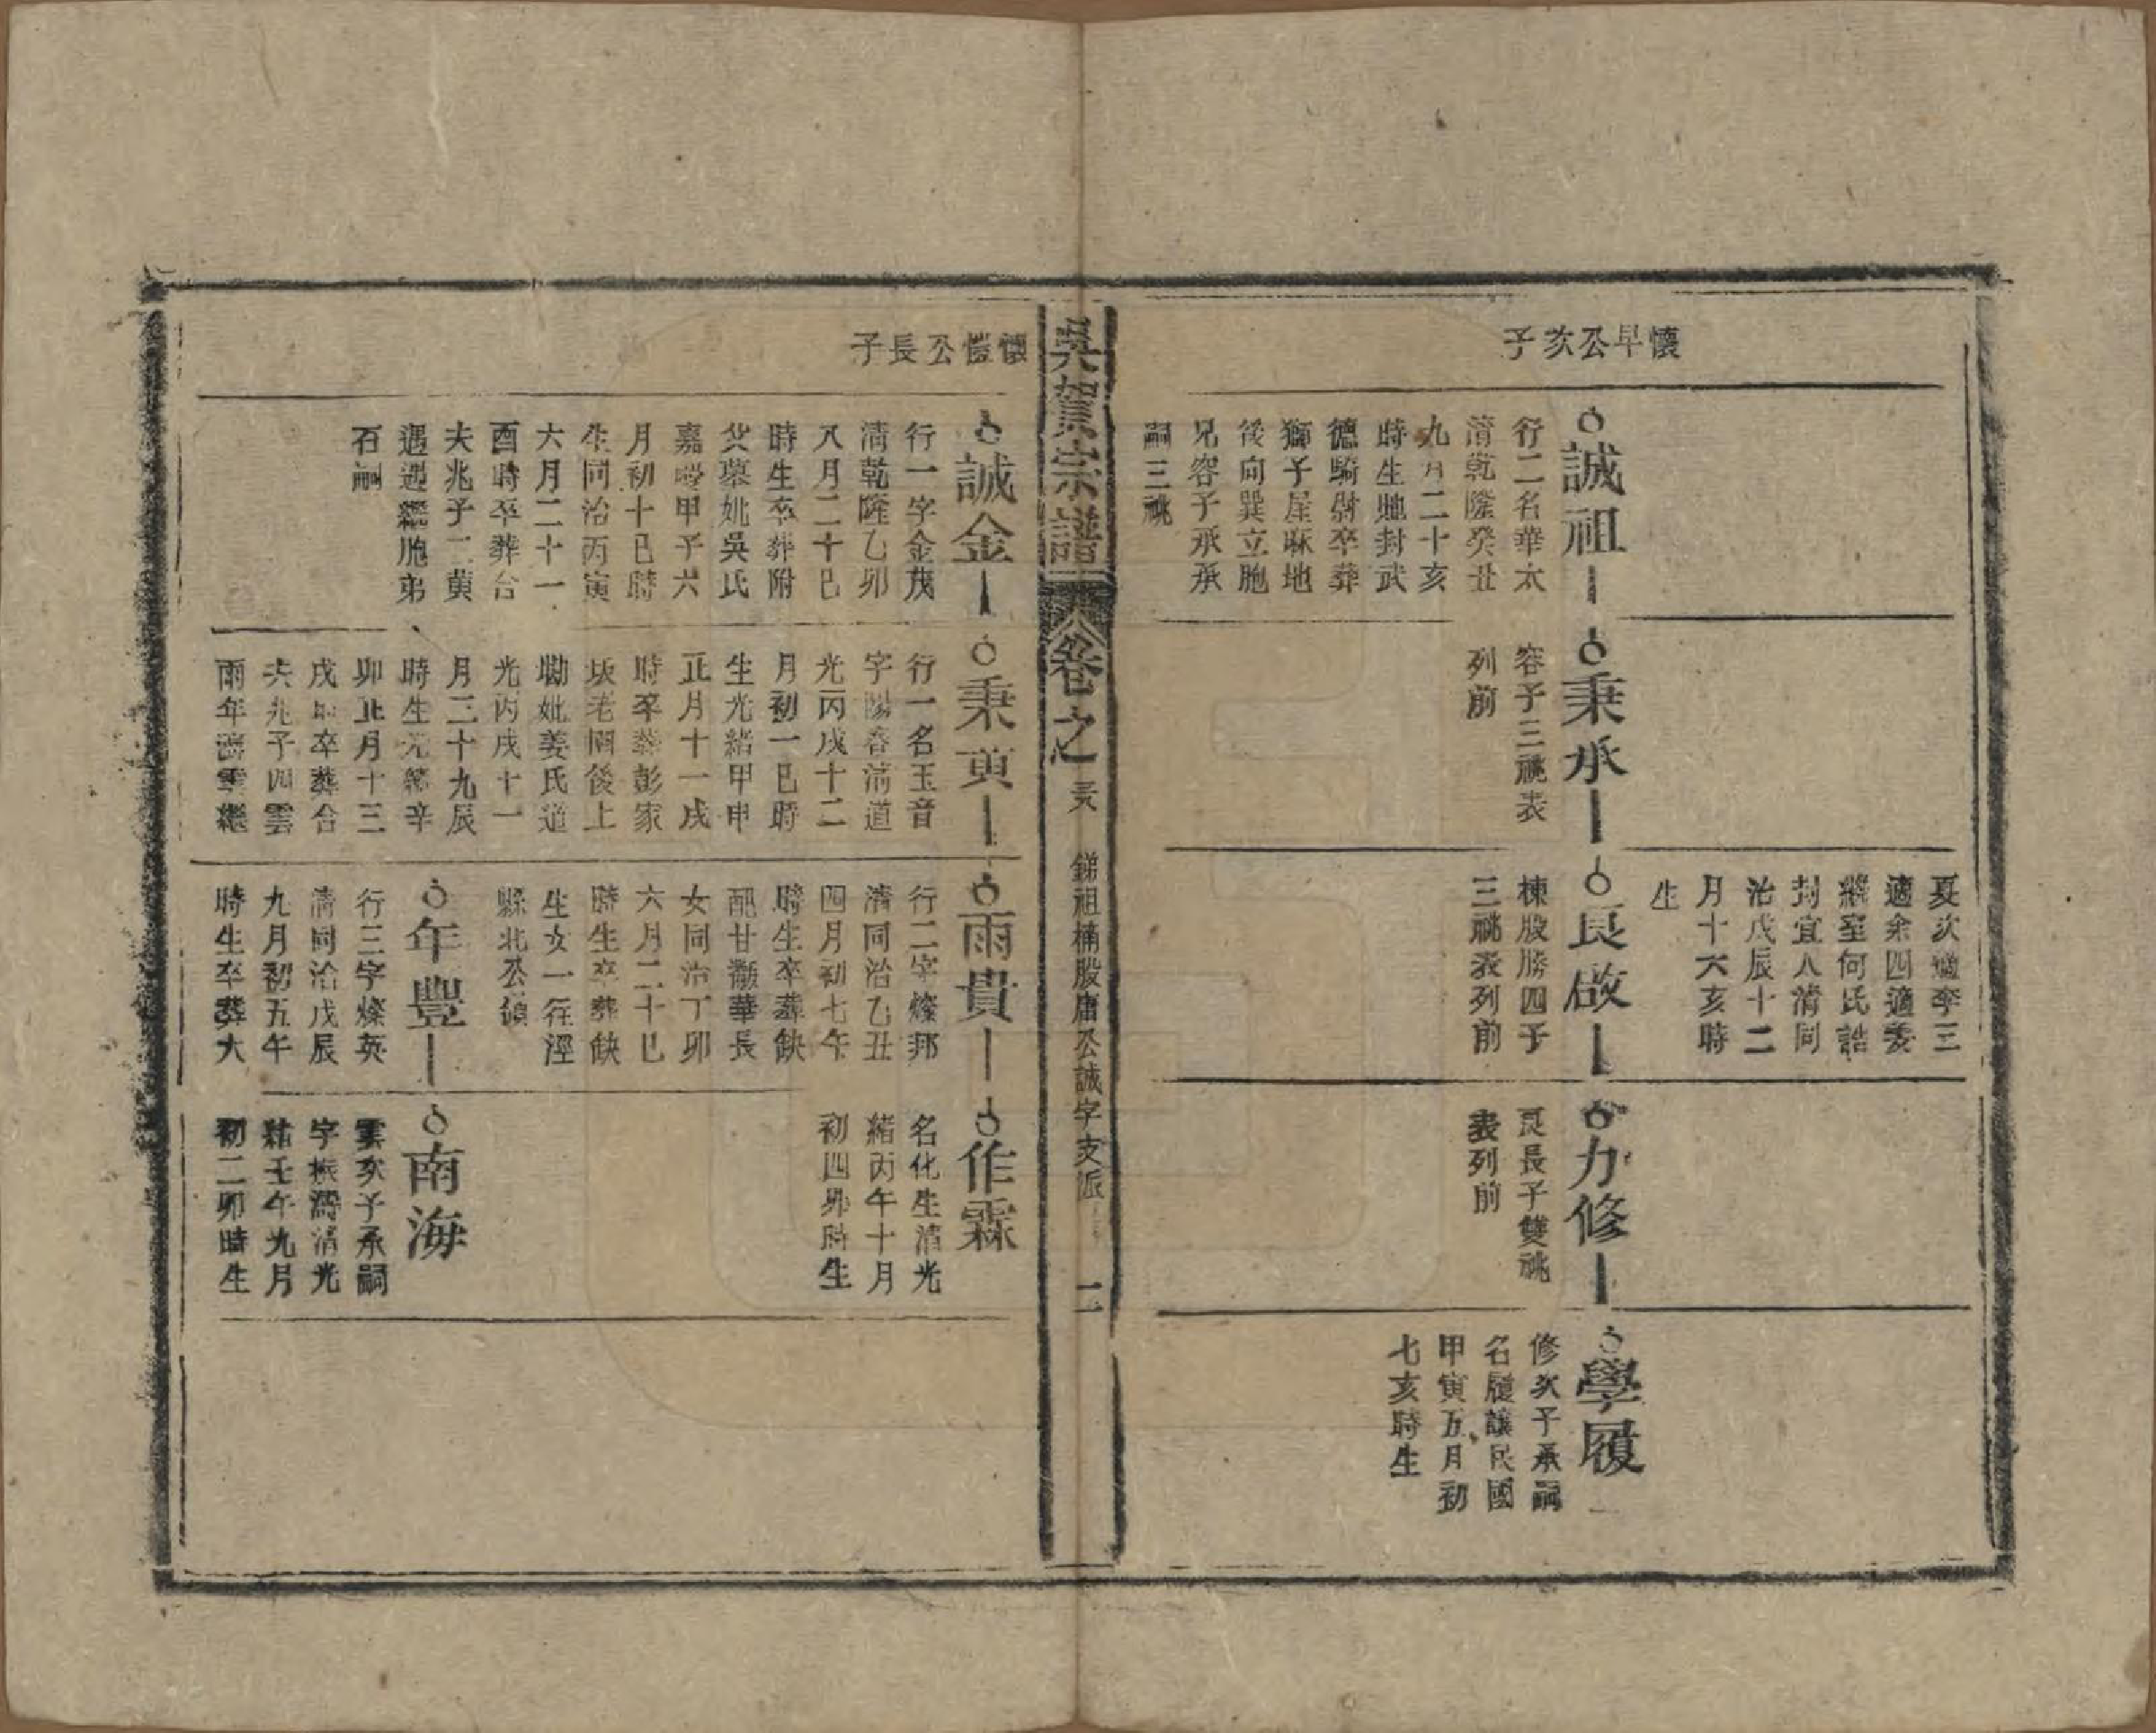 懷早公次子
誠祖
行二名華太
清乾隆癸丑
九月二十亥
時生馳封武
德騎尉卒葬
獅子屋麻地
後向巽立胞
兄容子承承
嗣三祧
秉承
容子三祧表
列前
夏次適李三
適余四適委
繼室何氏誥
封宜人清同
治戊辰十二
月十六亥時
生
良啟
棟股勝四子
三祧表列前
力修
良長子雙祧
表列前
學履
修次子承嗣
名履謙民國
甲寅五月初
七亥時生
吳駕宗譜
卷之
銻祖楠股庸公誠字支派
二
懷愷公長子
誠金
行一字金茂
清乾隆乙卯
八月二十巳
時生卒葬附
父墓妣吳氏
嘉慶甲子六
月初十巳時
生同治丙寅
六月二十一
酉時卒葬合
夫兆子二黄
遇遇繼胞弟
石嗣
秉黄
行一名玉音
字陽春清道
光丙戌十二
月初一巳時
生光緒甲申
正月十一戌
時卒葬彭家
坂老園後上
坳妣姜氏道
光丙戌十一
月二十九辰
時生光緒辛
卯正月十三
戌時卒葬合
夫兆子四雲
雨年濟雲繼
雨貴
行二字燦邦
清同治乙丑
四月初七午
時生卒葬缺
配甘灝華長
女同治丁卯
六月二十巳
時生卒葬缺
生女一往涇
縣北公領
年豐
行三字燦英
清同治戊辰
九月初五午
時生卒葬大
作霖
名化生清光
緒丙午十月
初四卯時生
南海
雲次子承嗣
字振濤清光
緒壬午九月
初二卯時生